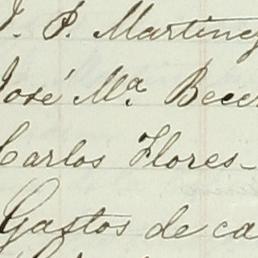 P. Martinez
José Mª Becer
Carlos Flores
Gastos de ca